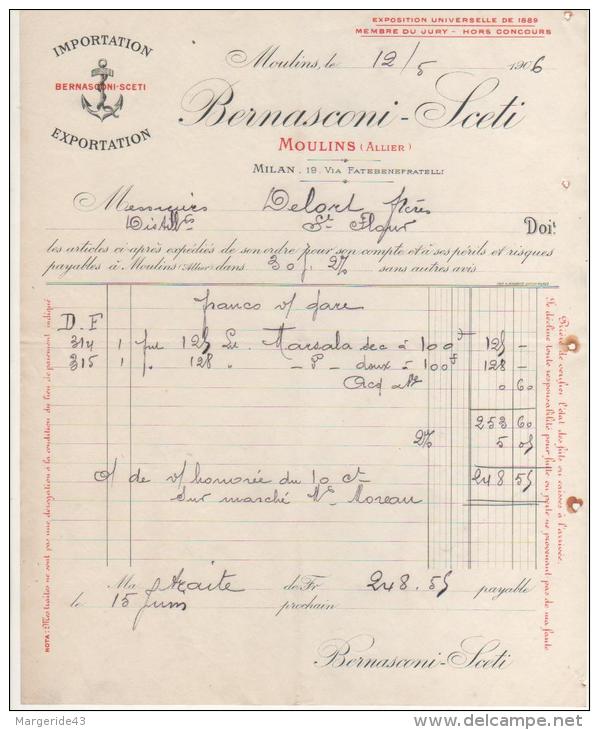 EXPOSITION UNIVERSELLE DE 1889
MEMBRE DU JURY - HORS CONCOURS
IMPORTATION
BERNASCONI-SCETI
EXPORTATION
Moulins, le 12/5 1906
Bernasconi-Sceti
MOULINS (ALLIER)
MILAN, 19, VIA FATEBENEFRATELLI
Messieurs Delort frères
St Flour
Doit
les articles ci-après expédiés de son ordre pour son compte et à ses périls et risques
payables à Moulins (Allier) dans 30 j. 2% sans autres avis
franco v/ gare
D. F
314 1 fut 125 Marsala sec à 100 f 125 -
315 1 f. 128 " - d° - doux à 100 f 128 -
0 60
253 60
2% 5 05
248 55
o/ de v/ honorée du 10 ct
Sur marché Moreau
Ma traite de Fr. 248.55 payable
le 15 Juin prochain
Bernasconi-Sceti
NOTA: Mes traites ne sont pas une dérogation à la condition du lieu de paiement indiqué
Prière de vérifier l'état des fûts ou caisses à l'arrivée.
Je décline toute responsabilité pour fuite ou perte ne provenant pas de ma faute
Margeride43
delcampe.net